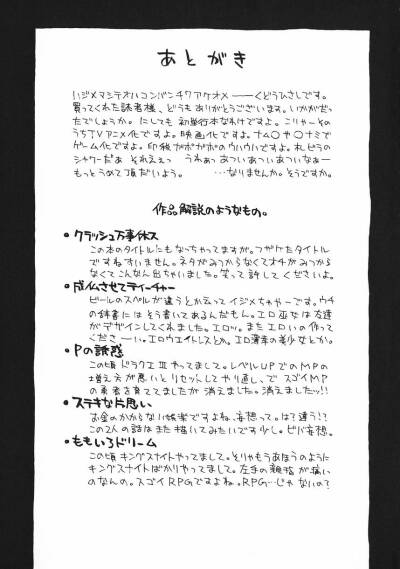 あとがき
ハジメマシテオハコンバンチワアケオメ ――くどうひさしです。
買ってくれた読者様、どうもありがとうございます。いかがだっ
たでしょうか。にしても初単行本なわけですよ。こりゃーその
うちTVアニメ化ですよ。映画化ですよ。ナム〇や〇ナミで
ゲーム化ですよ。印税がポガポのウハウハですよ。札ビラの
シャワーだぁ それえぇっ うわぁっ あついあついあついなぁー
もっとうめて頂だいよう。 ……なりませんか。そうですか。
作品解説のようなもの。
●クラッシュ万事休ス
この本のタイトルにもなっちゃってますが。フザけたタイトル
ですねすいません。ネタがみつからなくてオチがみつから
なくてこんなん出ちゃいました。笑って許してくださいよ。
●成仏させてティーチャー
ビールのスペルが違うとか云ってイジメちゃやーです。ウチ
の辞書にはそう書いてあるんだもん。エロ巫女は友達
がデザインしてくれました。エロッ。またエロいの作って
くださーい。エロウエイトレスとか。エロ薄幸の美少女とか。
●Pの誘惑
この頃ドラクエⅢやってまして。レベルUPでのMPの
増え方が悪いとリセットしてやり直し、で スゴイMP
の勇者を育ててましたが 消えました。消えましたッ!!
●ステキな片思い
お金のかからない娯楽ですよね、妄想って。はて違う!?
この2人の話はまた描いてみたいです少し。ビバ妄想。
●ももいろドリーム
この頃キングスナイトやってまして。そりゃもうあほうのように
キングスナイトばかりやってまして。左手の親指が痛い
のなんの。スゴイRPGですよね。RPG…じゃないの?